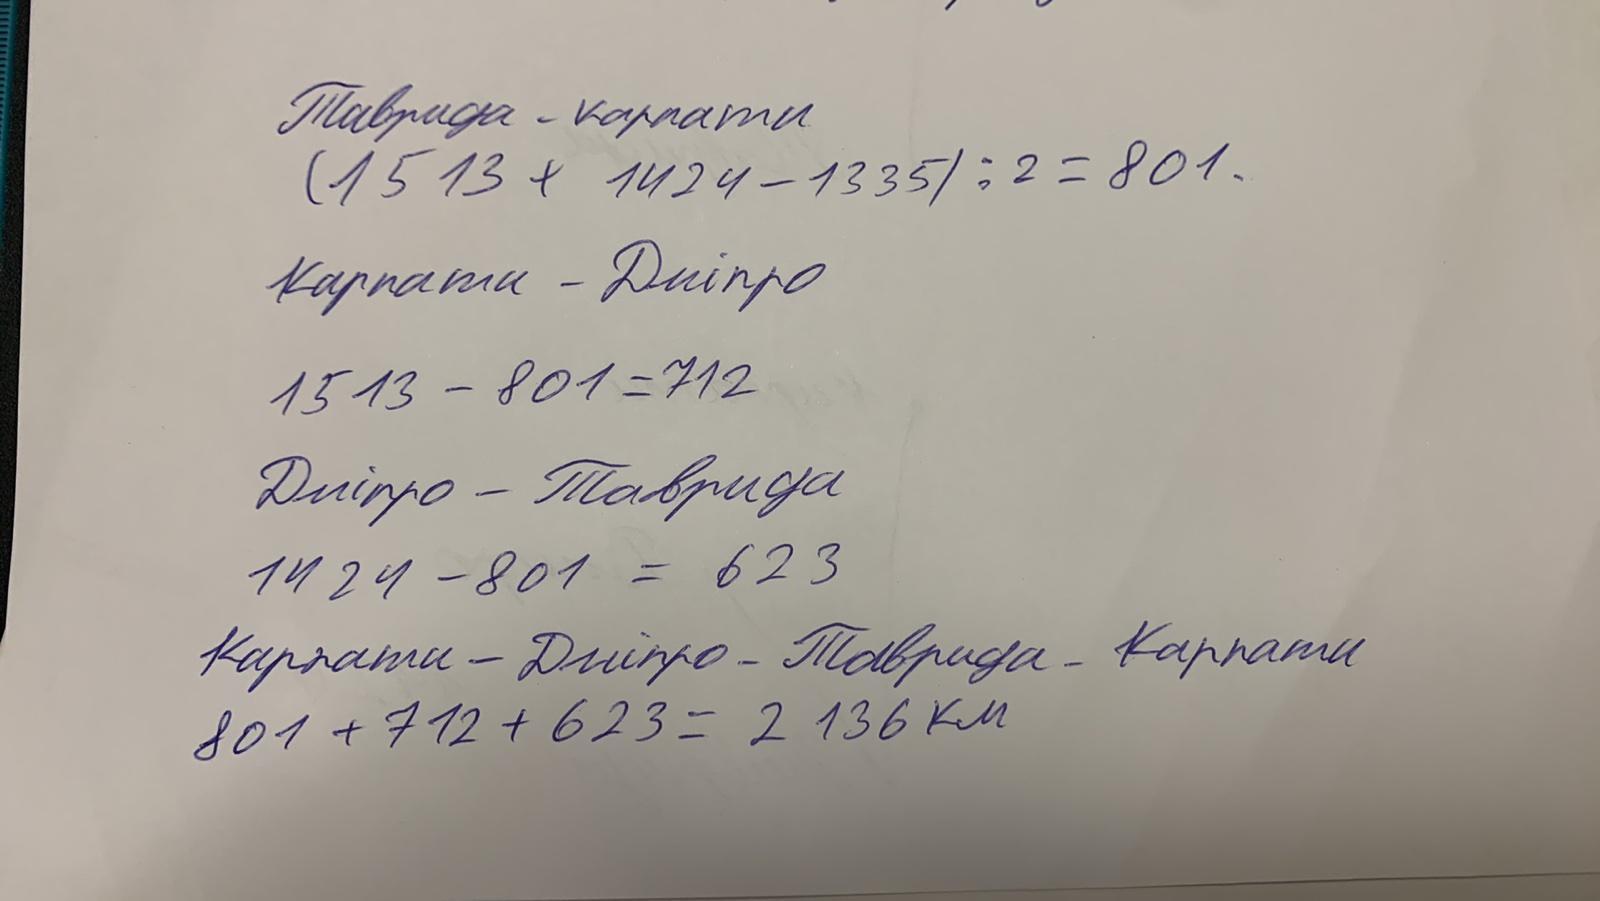 Таврида - Карпати
(1513 + 1424 - 1335) : 2 = 801.
Карпати - Дніпро
1513 - 801 = 712
Дніпро - Таврида
1424 - 801 = 623
Карпати - Дніпро - Таврида - Карпати
801 + 712 + 623 = 2 136 км